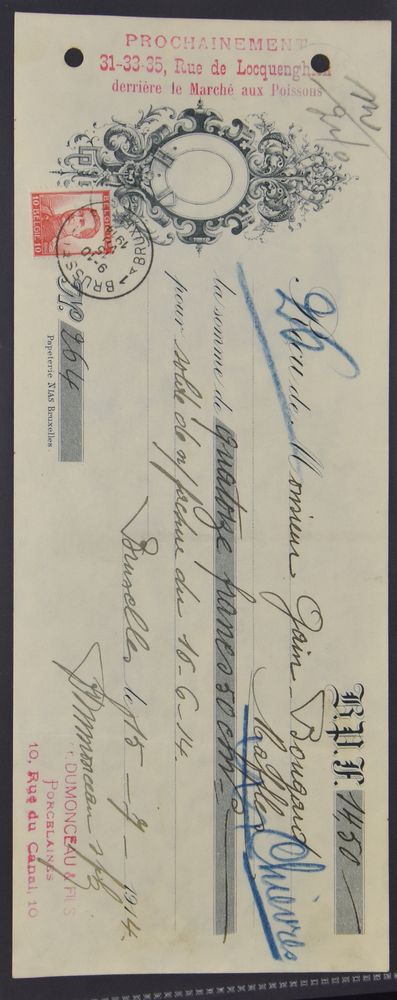 PROCHAINEMENT
31-33-35, Rue de Locquenghien
derrière le Marché aux Poissons
BELGIQUE
10 BELGIË 10
BRUSSEL
BRUXELLES
N° 264
B.P.F. 14,50
Reçu de Monsieur Gain-Bougard
Maffles
Chièvres
la somme de quatorze francs 50 cms
pour solde de n/ facture du 18-6-14.
Bruxelles le 15-7-1914.
Dumonceau & fils
DUMONCEAU & FILS
PORCELAINES
10, Rue du Canal, 10
Papeterie NIAS Bruxelles